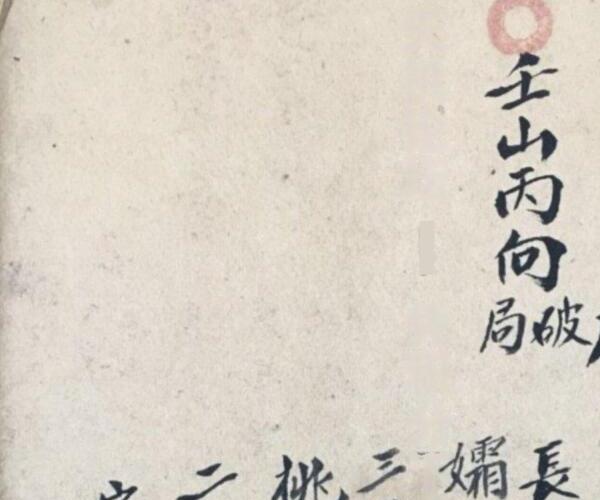 壬山丙向
破局
長
孀
三
桃
二